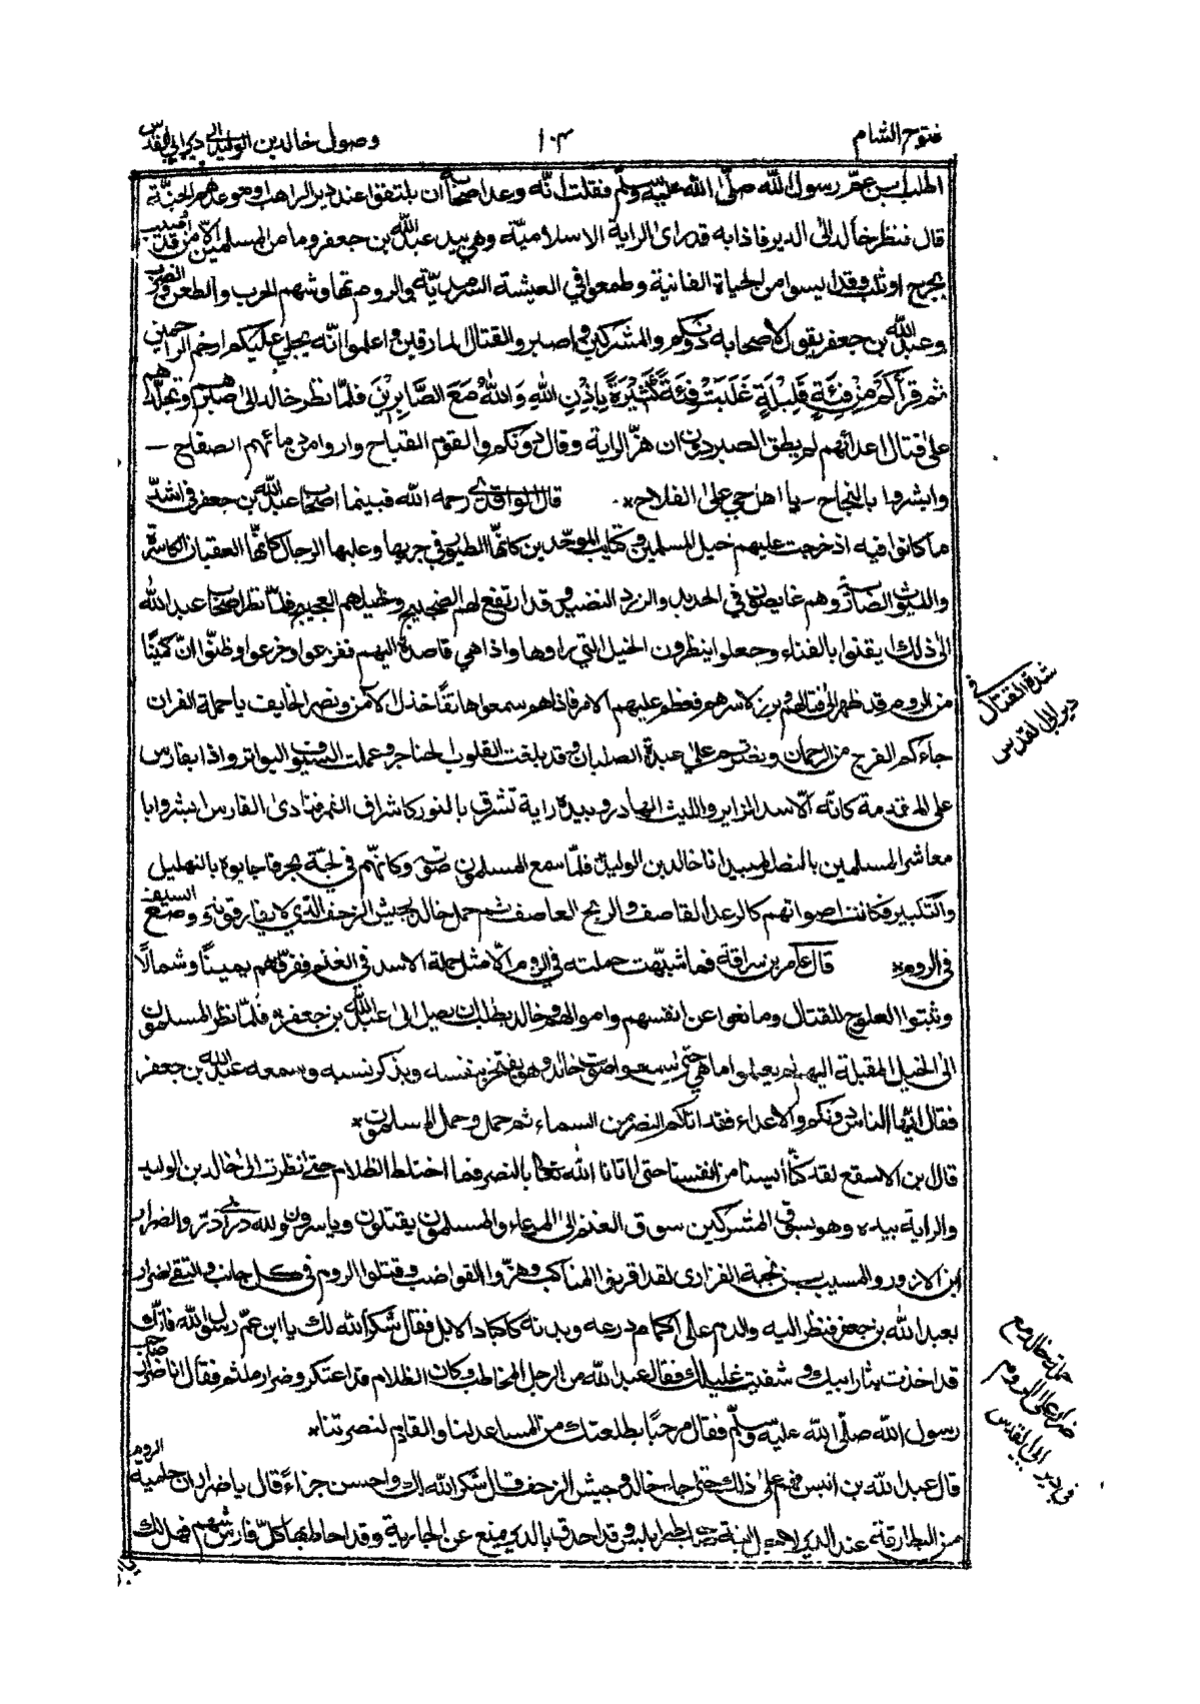 فتوح الشام
١٠٣
وصول خالد بن الوليد الى دير ابي القدس
اطلب ابن عمّ رسول الله صلّى الله عليه وسلّم فقلت انّه وعد اصحابه ان يلتقوا عند دير الراهب او موعدهم الجنّة
قال فنظر خالد الى الدير فاذا به قد راى الراية الاسلاميّة وهي بيد عبد الله بن جعفر وما من المسلمين الّا من قد اصيب
بجرح وقد ايسوا من الحياة الفانية وطمعوا في العيشة السرمديّة والروم تهاوشهم الحرب والطعن والضرب
وعبد الله بن جعفر يقول لاصحابه دونكم والمشركين واصبروا لقتال المارقين واعلموا انّه تجلّى عليكم ارحم الراحمين
ثم قرأ كَمْ مِنْ فِئَةٍ قَلِيْلَةٍ غَلَبَتْ فِئَةً كَثِيْرَةً بِاِذْنِ اللهِ وَاللهُ مَعَ الصَّابِرِيْنَ فلمّا نظر خالد الى صبرهم وتجلّدهم
على قتال اعدائهم لم يطق الصبر دون ان هزّ الراية وقال دونكم والقوم القباح واروا من دمائهم الصفاح —
وابشروا بالنجاح - يا اهل حي على الفلاح * قال الواقدي رحمه الله فبينما اصحاب عبد الله بن جعفر في اشدّ
ما كانوا فيه اذ خرجت عليهم خيل المسلمين وكتايب الموحّدين كانّها الطيور في جريها وعليها الرجال كانّها العقبان الكاسرة
والليوث الضارية وهم غايصون في الحديد والزرد النضيد وقد ارتفع لهم الضجيج ولخيلهم العجيج فلمّا نظر اصحاب عبد الله
الى ذلك ايقنوا بالفناء وجعلوا ينظرون الخيل التي راوها واذا هي قاصدة اليهم ففزعوا وجزعوا وظنّوا انّ كمينًا
من الروم قد ظهر الى قتالهم فعظم عليهم الامر فاذا هم سمعوا هاتفًا خذل الآمن ونصر الخايف يا حملة القران
جاءكم الفرج من الرحمان ونصرتم على عبدة الصلبان وقد بلغت القلوب الحناجر وعملت السيوف البواتر واذا بفارس
على المقدمة كانّه الاسد الزاير والليث الهادر وبيده راية تشرق بالنور كاشراق القمر فنادى الفارس ابشروا يا
معاشر المسلمين بالنصر المبيد انا خالد بن الوليد فلمّا سمع المسلمون صوته وكانّهم في لجّة بحر فاجابوه بالتهليل
والتكبير فكانت اصواتهم كالرعد القاصف والريح العاصف ثم حمل خالد بجيش الزحف الذي لا يفارقونه ووضع السيف
في الروم * قال عامر بن سراقة فما شبّهت حملته في الروم الّا مثل حملة الاسد في الغنم ففرّقهم يمينًا وشمالًا
وثبتوا العلوج للقتال ومانعوا عن انفسهم واموالهم وخالد يطلب ان يصل الى عبد الله بن جعفر فلمّا نظر المسلمون
الى الخيل المقبلة اليهم لم يعلموا ما هي حتى سمعوا صوت خالد وهو يفتخر بنفسه ويذكر نسبه وسمعه عبد الله بن جعفر
فقال ايّها الناس دونكم والاعداء فقد اتاكم النصر من السماء ثم حمل وحمل المسلمون *
قال بن الاسقع لقد كنّا أيسنا من انفسنا حتى اتانا الله تعالى بالنصر فما اختلط الظلام حتى نظرت الى خالد بن الوليد
والراية بيده وهو يسوق المشركين سوق الغنم الى المرعاء والمسلمون يقتلون وياسرون ولله درّ والضرار
ابن الازور والمسيب بن نجمة الفزاري لقد اقرنوا المناكب وهزّوا القواضب وقتلوا الروم في كل جانب والتقى ضرار
بعبد الله بن جعفر فنظر اليه والدم على اكمام درعه وبدنه كاكباد الابل فقال شكر الله لك يا ابن عمّ رسول الله فانّك
قد اخذت بثار ابيك وشفيت غليلك فقال عبد الله من الرجل المخاطب وكان الظلام قد اعتكر وضرار ملثم فقال انا ضرار صاحب
رسول الله صلّى الله عليه وسلّم فقال مرحبًا بطلعتك من المساعد لنا والقادم لنصرتنا *
قال عبد الله بن انيس فهم على ذلك حتى جاء خالد وجيش الزحف قال شكر الله لك واحسن جزاءً قال يا ضرار ان حامية الروم
من البطارقة عند الدير وقد احدق بالدير يمنع عن الجارية وقد احاط بها كلّ فارس شهم فهل لك
شدة القتال في
دير ابي القدس
حملة خالد مع
ضرار على الروم
في دير ابي القدس